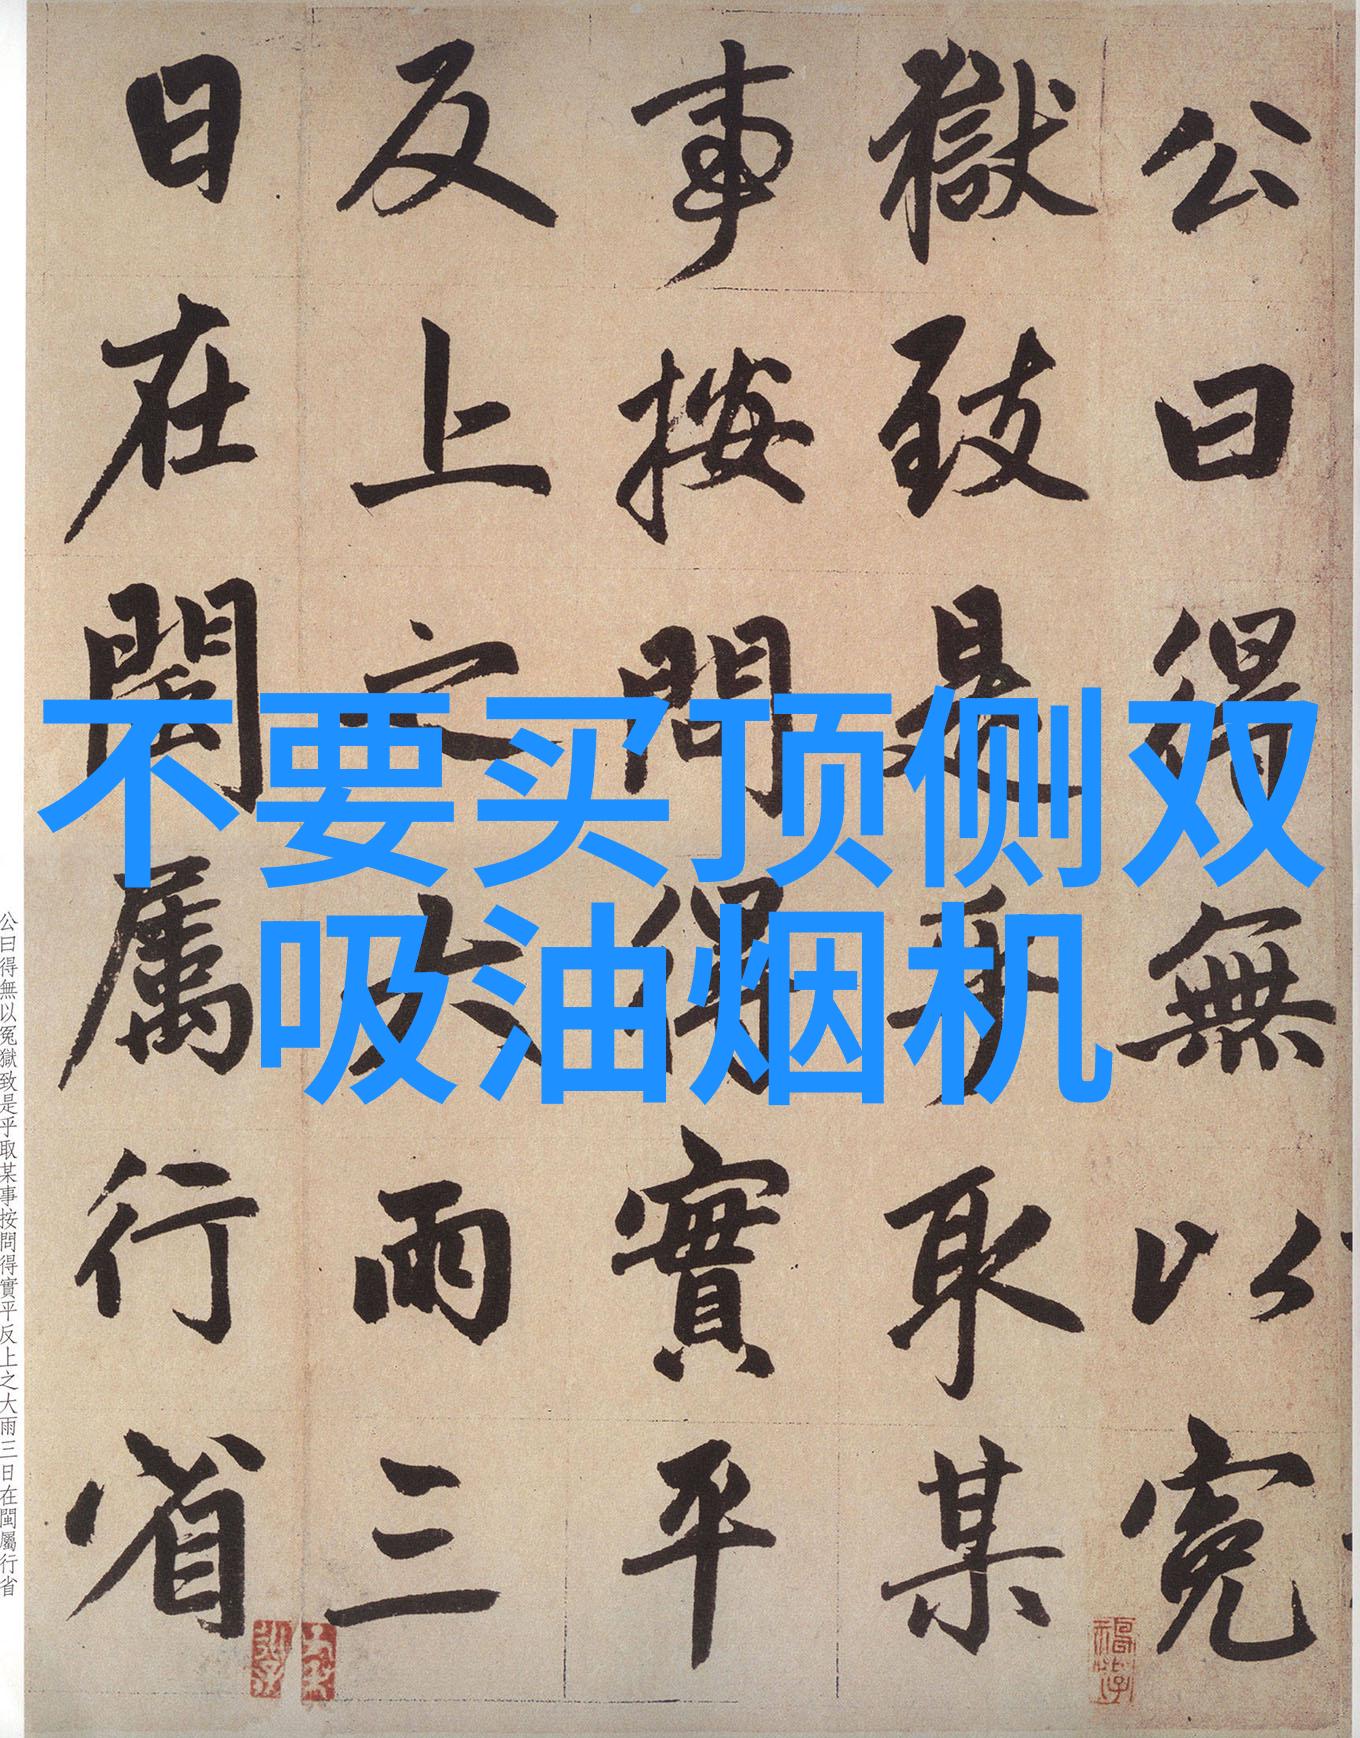 不要买顶侧双
吸油烟机
公曰得無以冤
獄致是乎取某
事按問得實平
反上之大雨三
日在閩屬行省
公曰得無以冤獄致是乎取某事按問得實平反上之大雨三日在閩屬行省